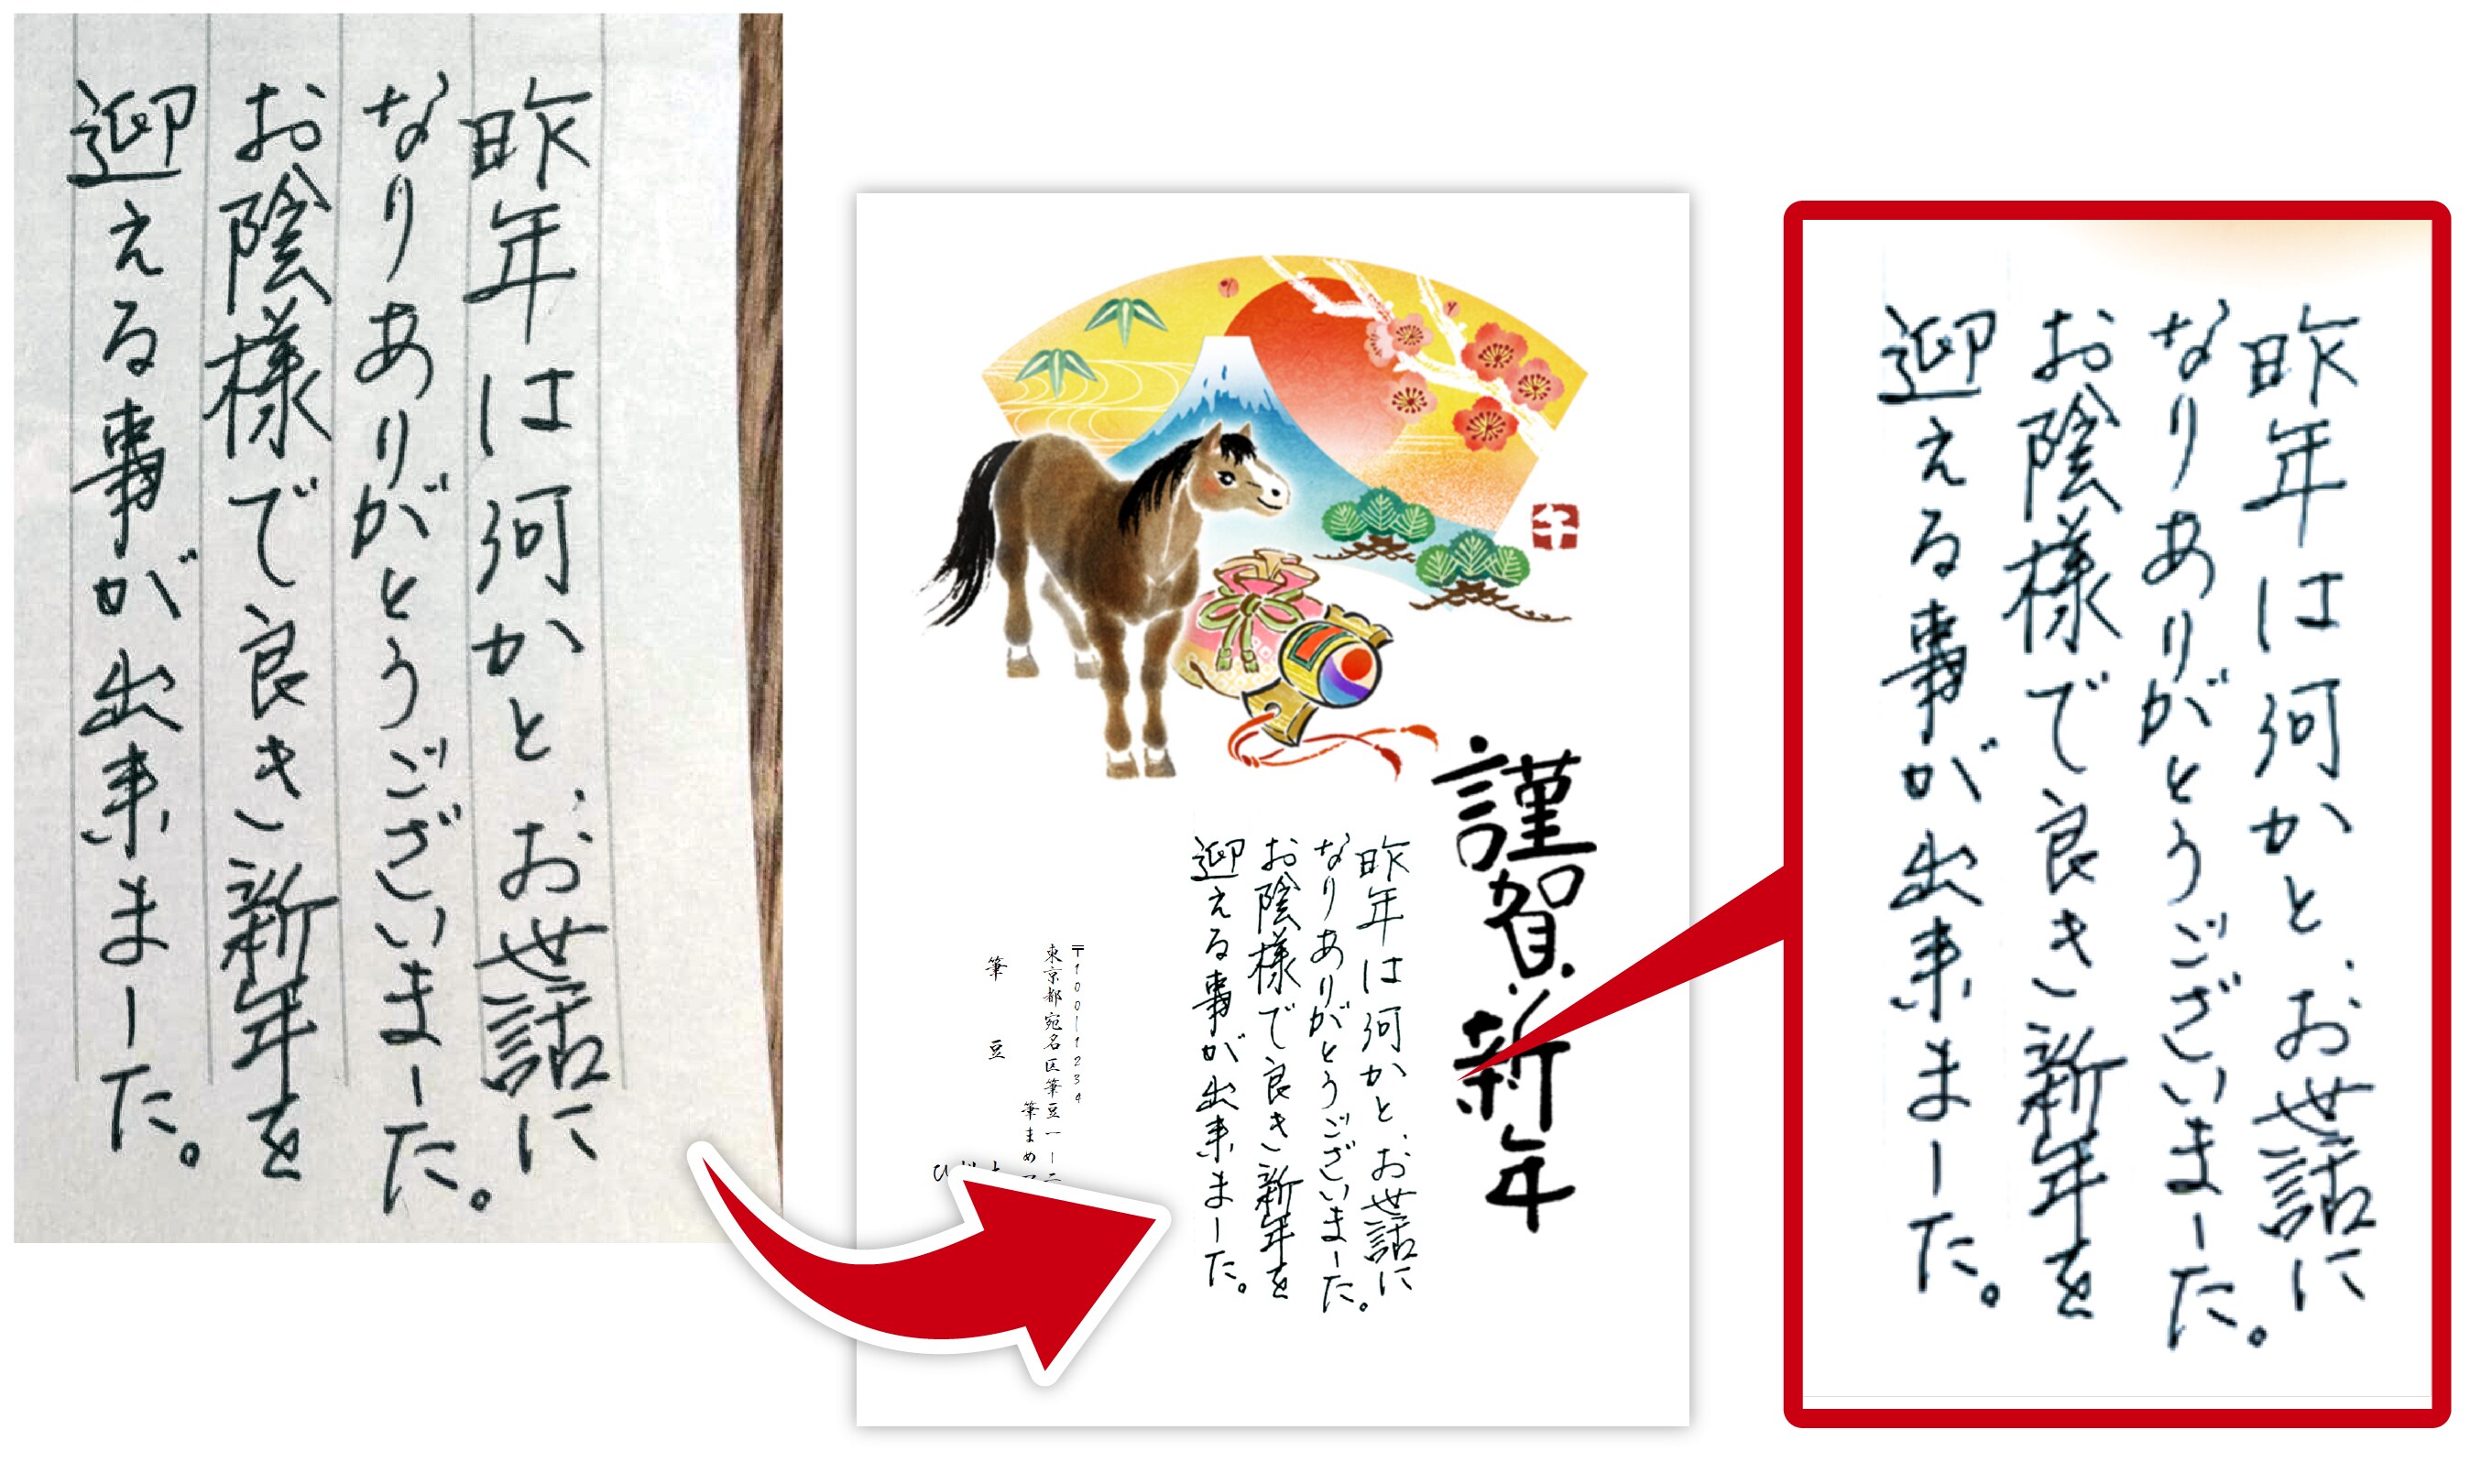 昨年は何かと、お世話に
なりありがとうございました。
お陰様で良き新年を
迎える事が出来ました。
午
謹賀新年
昨年は何かと、お世話に
なりありがとうございました。
お陰様で良き新年を
迎える事が出来ました。
〒100-1234
東京都宛名区筆豆一-二
筆まめ
筆豆
ひ
昨年は何かと、お世話に
なりありがとうございました。
お陰様で良き新年を
迎える事が出来ました。